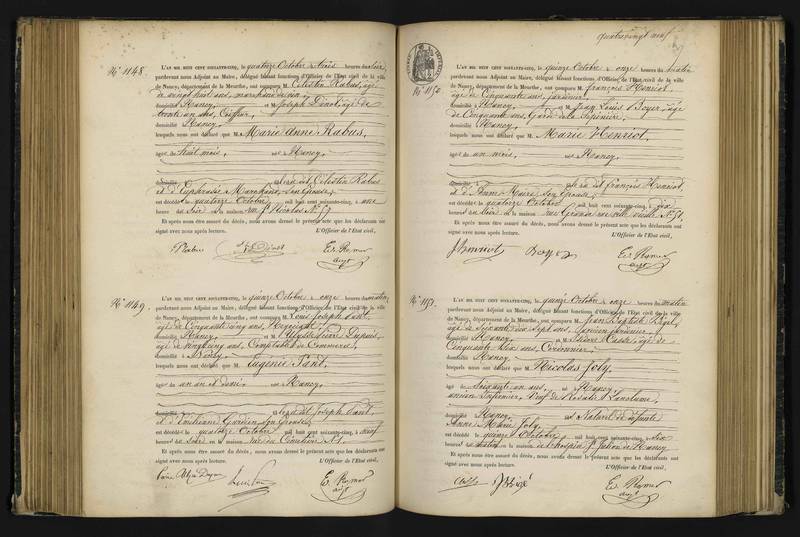 N° 1148.
L'AN MIL HUIT CENT SOIXANTE-CINQ, le quatorze Octobre à trois heures du soir
pardevant nous Adjoint au Maire, délégué faisant fonctions d'Officier de l'Etat civil de la ville
de Nancy, département de la Meurthe, ont comparu M. Célestin Rabus, âgé
de vingt huit ans, marchand de vin,
domicilié à Nancy, et M. Joseph âgé de
trente un ans, Coiffeur,
domicilié à Nancy,
lesquels nous ont déclaré que M. Marie Anne Rabus,
âgée de huit mois, née à Nancy,
domiciliée fille dudit Célestin Rabus
et d'Euphrasie Marchand, son épouse,
est décédée le quatorze Octobre mil huit cent soixante-cinq, à une
heure du soir en la maison rue St Nicolas N° 57
Et après nous être assuré du décès, nous avons dressé le présent acte que les déclarants ont
signé avec nous après lecture. L'Officier de l'Etat civil,
Rabus Ed. Romer
adjt
N° 1149.
L'AN MIL HUIT CENT SOIXANTE-CINQ, le quinze Octobre à onze heures du matin,
pardevant nous Adjoint au Maire, délégué faisant fonctions d'Officier de l'Etat civil de la ville
de Nancy, département de la Meurthe, ont comparu M. Louis Joseph
âgé de Cinquante cinq ans, Négociant,
domicilié à Nancy, et M. Dupuis,
âgé de ans, Comptable de Commerce,
domicilié à Nancy,
lesquels nous ont déclaré que M. Eugénie
âgée de un an et demi, née à Nancy,
domiciliée fille dudit Joseph
et d'Emilienne son épouse,
est décédée le quatorze Octobre mil huit cent soixante-cinq, à neuf
heures du soir en la maison rue du Cimetière N° 1
Et après nous être assuré du décès, nous avons dressé le présent acte que les déclarants ont
signé avec nous après lecture. L'Officier de l'Etat civil,
Ed. Romer
adjt
quatrevingt neuf
N° 1150
L'AN MIL HUIT CENT SOIXANTE-CINQ, le quinze Octobre à onze heures du matin
pardevant nous Adjoint au Maire, délégué faisant fonctions d'Officier de l'Etat civil de la ville
de Nancy, département de la Meurthe, ont comparu M. François Henriot,
âgé de Cinquante ans, jardinier,
domicilié à Nancy, et M. Jean Louis Boyer, âgé
de Cinquante ans, Garde de la Pépinière,
domicilié à Nancy,
lesquels nous ont déclaré que M. Marie Henriot,
âgée de un mois, née à Nancy,
domiciliée fille dudit François Henriot,
et d'Anne Maire son épouse,
est décédée le quatorze Octobre mil huit cent soixante-cinq, à six
heures du soir en la maison rue Grande ville vieille N° 51,
Et après nous être assuré du décès, nous avons dressé le présent acte que les déclarants ont
signé avec nous après lecture. L'Officier de l'Etat civil,
Henriot Boyer Ed. Romer
adjt
N° 1151.
L'AN MIL HUIT CENT SOIXANTE-CINQ, le quinze Octobre à onze heures du matin
pardevant nous Adjoint au Maire, délégué faisant fonctions d'Officier de l'Etat civil de la ville
de Nancy, département de la Meurthe, ont comparu M. Jean Baptiste
âgé de Soixante dix sept ans, Ancien infirmier,
domicilié à Nancy, et M. Casse, âgé de
Cinquante six ans, Cordonnier,
domicilié à Nancy,
lesquels nous ont déclaré que M. Nicolas Joly,
âgé de Soixante un ans, né à Nancy,
ancien Infirmier, Veuf de Rosalie
domicilié à Nancy, fils Naturel de défunte
Anne Marie Joly,
est décédé le quinze Octobre mil huit cent soixante-cinq, à six
heures du matin en la maison de l'hospice St Julien de Nancy
Et après nous être assuré du décès, nous avons dressé le présent acte que les déclarants ont
signé avec nous après lecture. L'Officier de l'Etat civil,
Ed. Romer
adjt